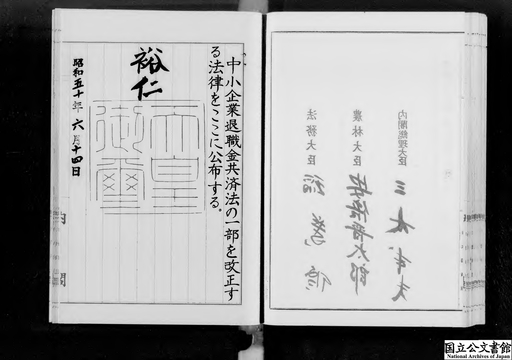 内閣総理大臣 三木武夫
農林大臣 安倍晋太郎
法務大臣 稲葉修
中小企業退職金共済法の一部を改正す
る法律をここに公布する。
裕仁
天皇
御璽
昭和五十年 六月十四日
内閣
国立公文書館
National Archives of Japan